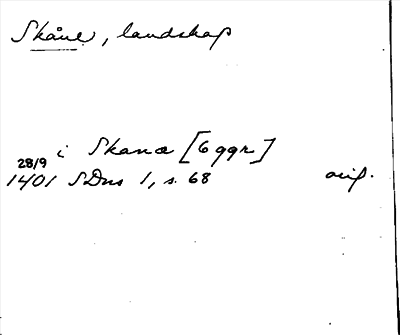 Skåne, landskap
i Skanæ [6 ggr]
28/9
1401 SDns 1, s. 68 orig.